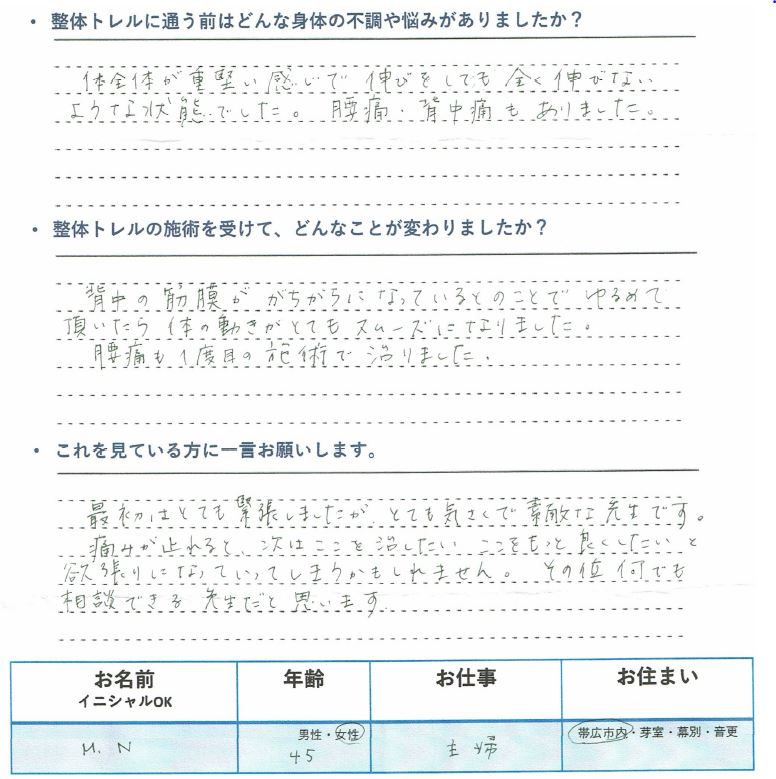 ・整体トレルに通う前はどんな身体の不調や悩みがありましたか？
体全体が重堅い感じで 伸びをしても 全く伸びない
ような状態でした。 腰痛・背中痛も ありました。
・整体トレルの施術を受けて、どんなことが変わりましたか？
背中の筋膜が がちがちになっているとのことで ゆるめて
頂いたら 体の動きがとてもスムーズになりました。
腰痛も1度目の施術で 治りました。
・これを見ている方に一言お願いします。
最初はとても緊張しましたが、とても気さくで素敵な先生です。
痛みが止れると、次はここを治したい ここをもっと良くしたいと
欲張りになっていってしまうかもしれません。 その位何でも
相談できる 先生だと思います
お名前 年齢 お仕事 お住まい
イニシャルOK
男性・女性 帯広市内・芽室・幕別・音更
M. N 45 主婦